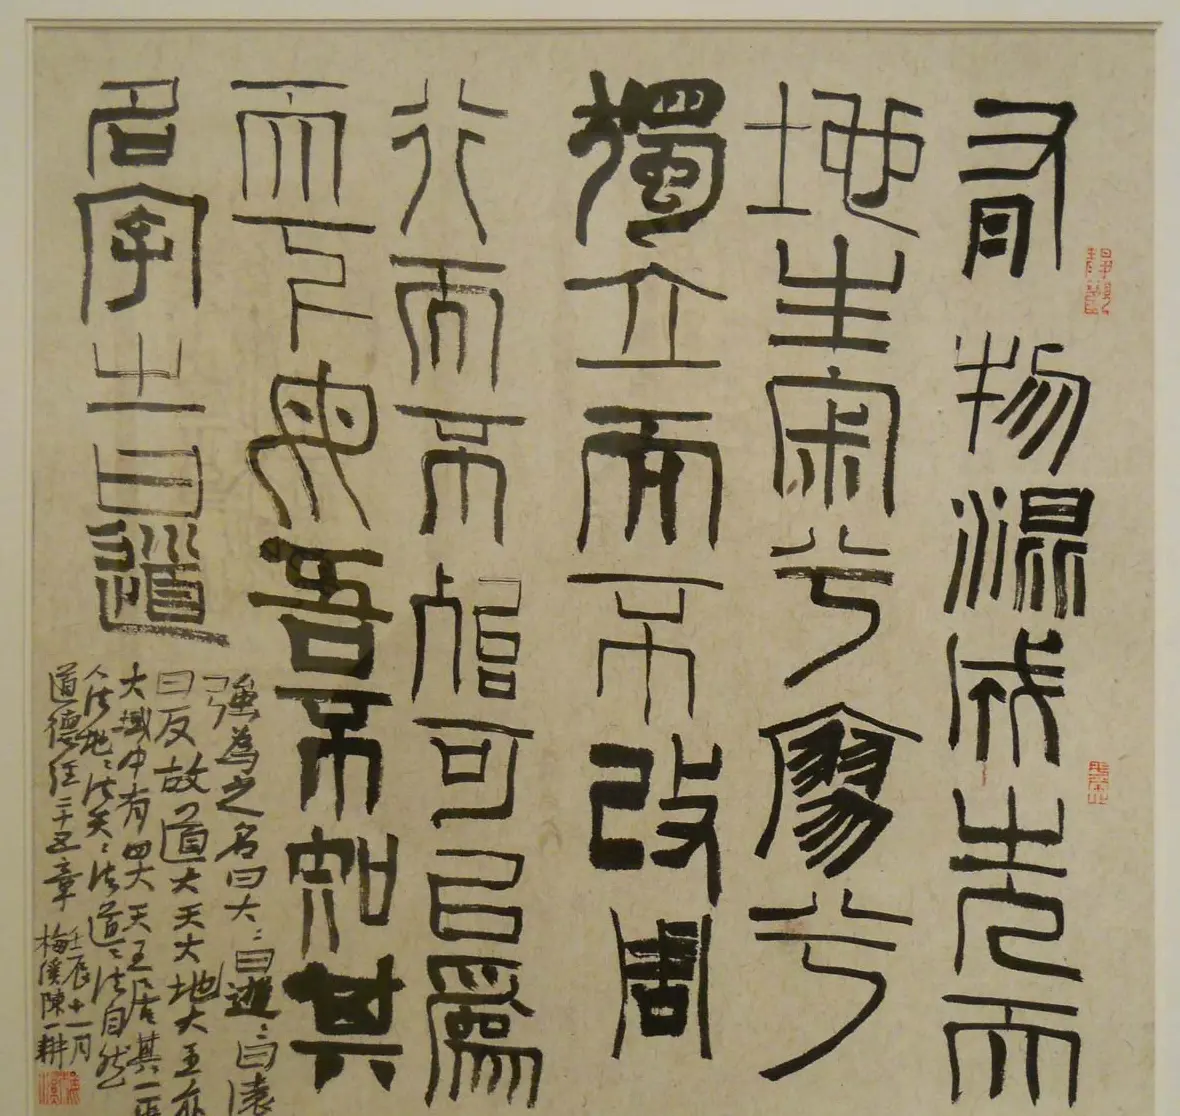 有物混成先天
地生寂兮寥兮
獨立而不改周
行而不殆可以為
天下母吾不知其
名字之曰道
強為之名曰大〻曰逝〻曰遠
曰反故道大天大地大王亦
大域中有四大天王居其一焉
人法地〻法天〻法道〻法自然
道德經二十五章
壬辰十一月
梅溪陳一耕